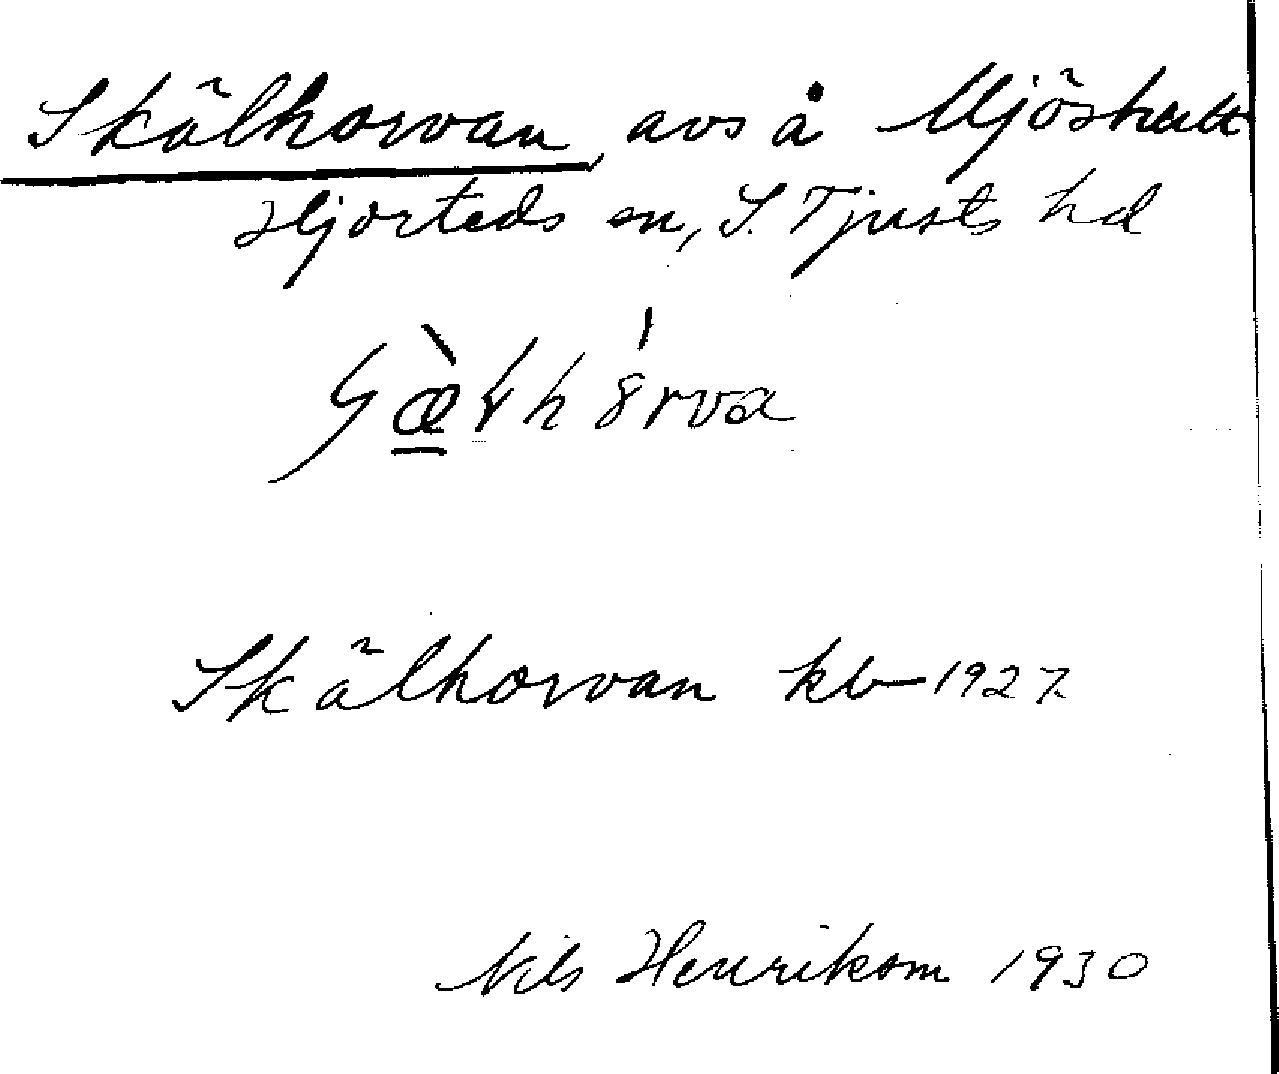 Skälhorvan, avs å Mjöshult
Hjorteds sn, S. Tjusts hd
Skälhorvan kb 1927
Nils Henrikson 1930